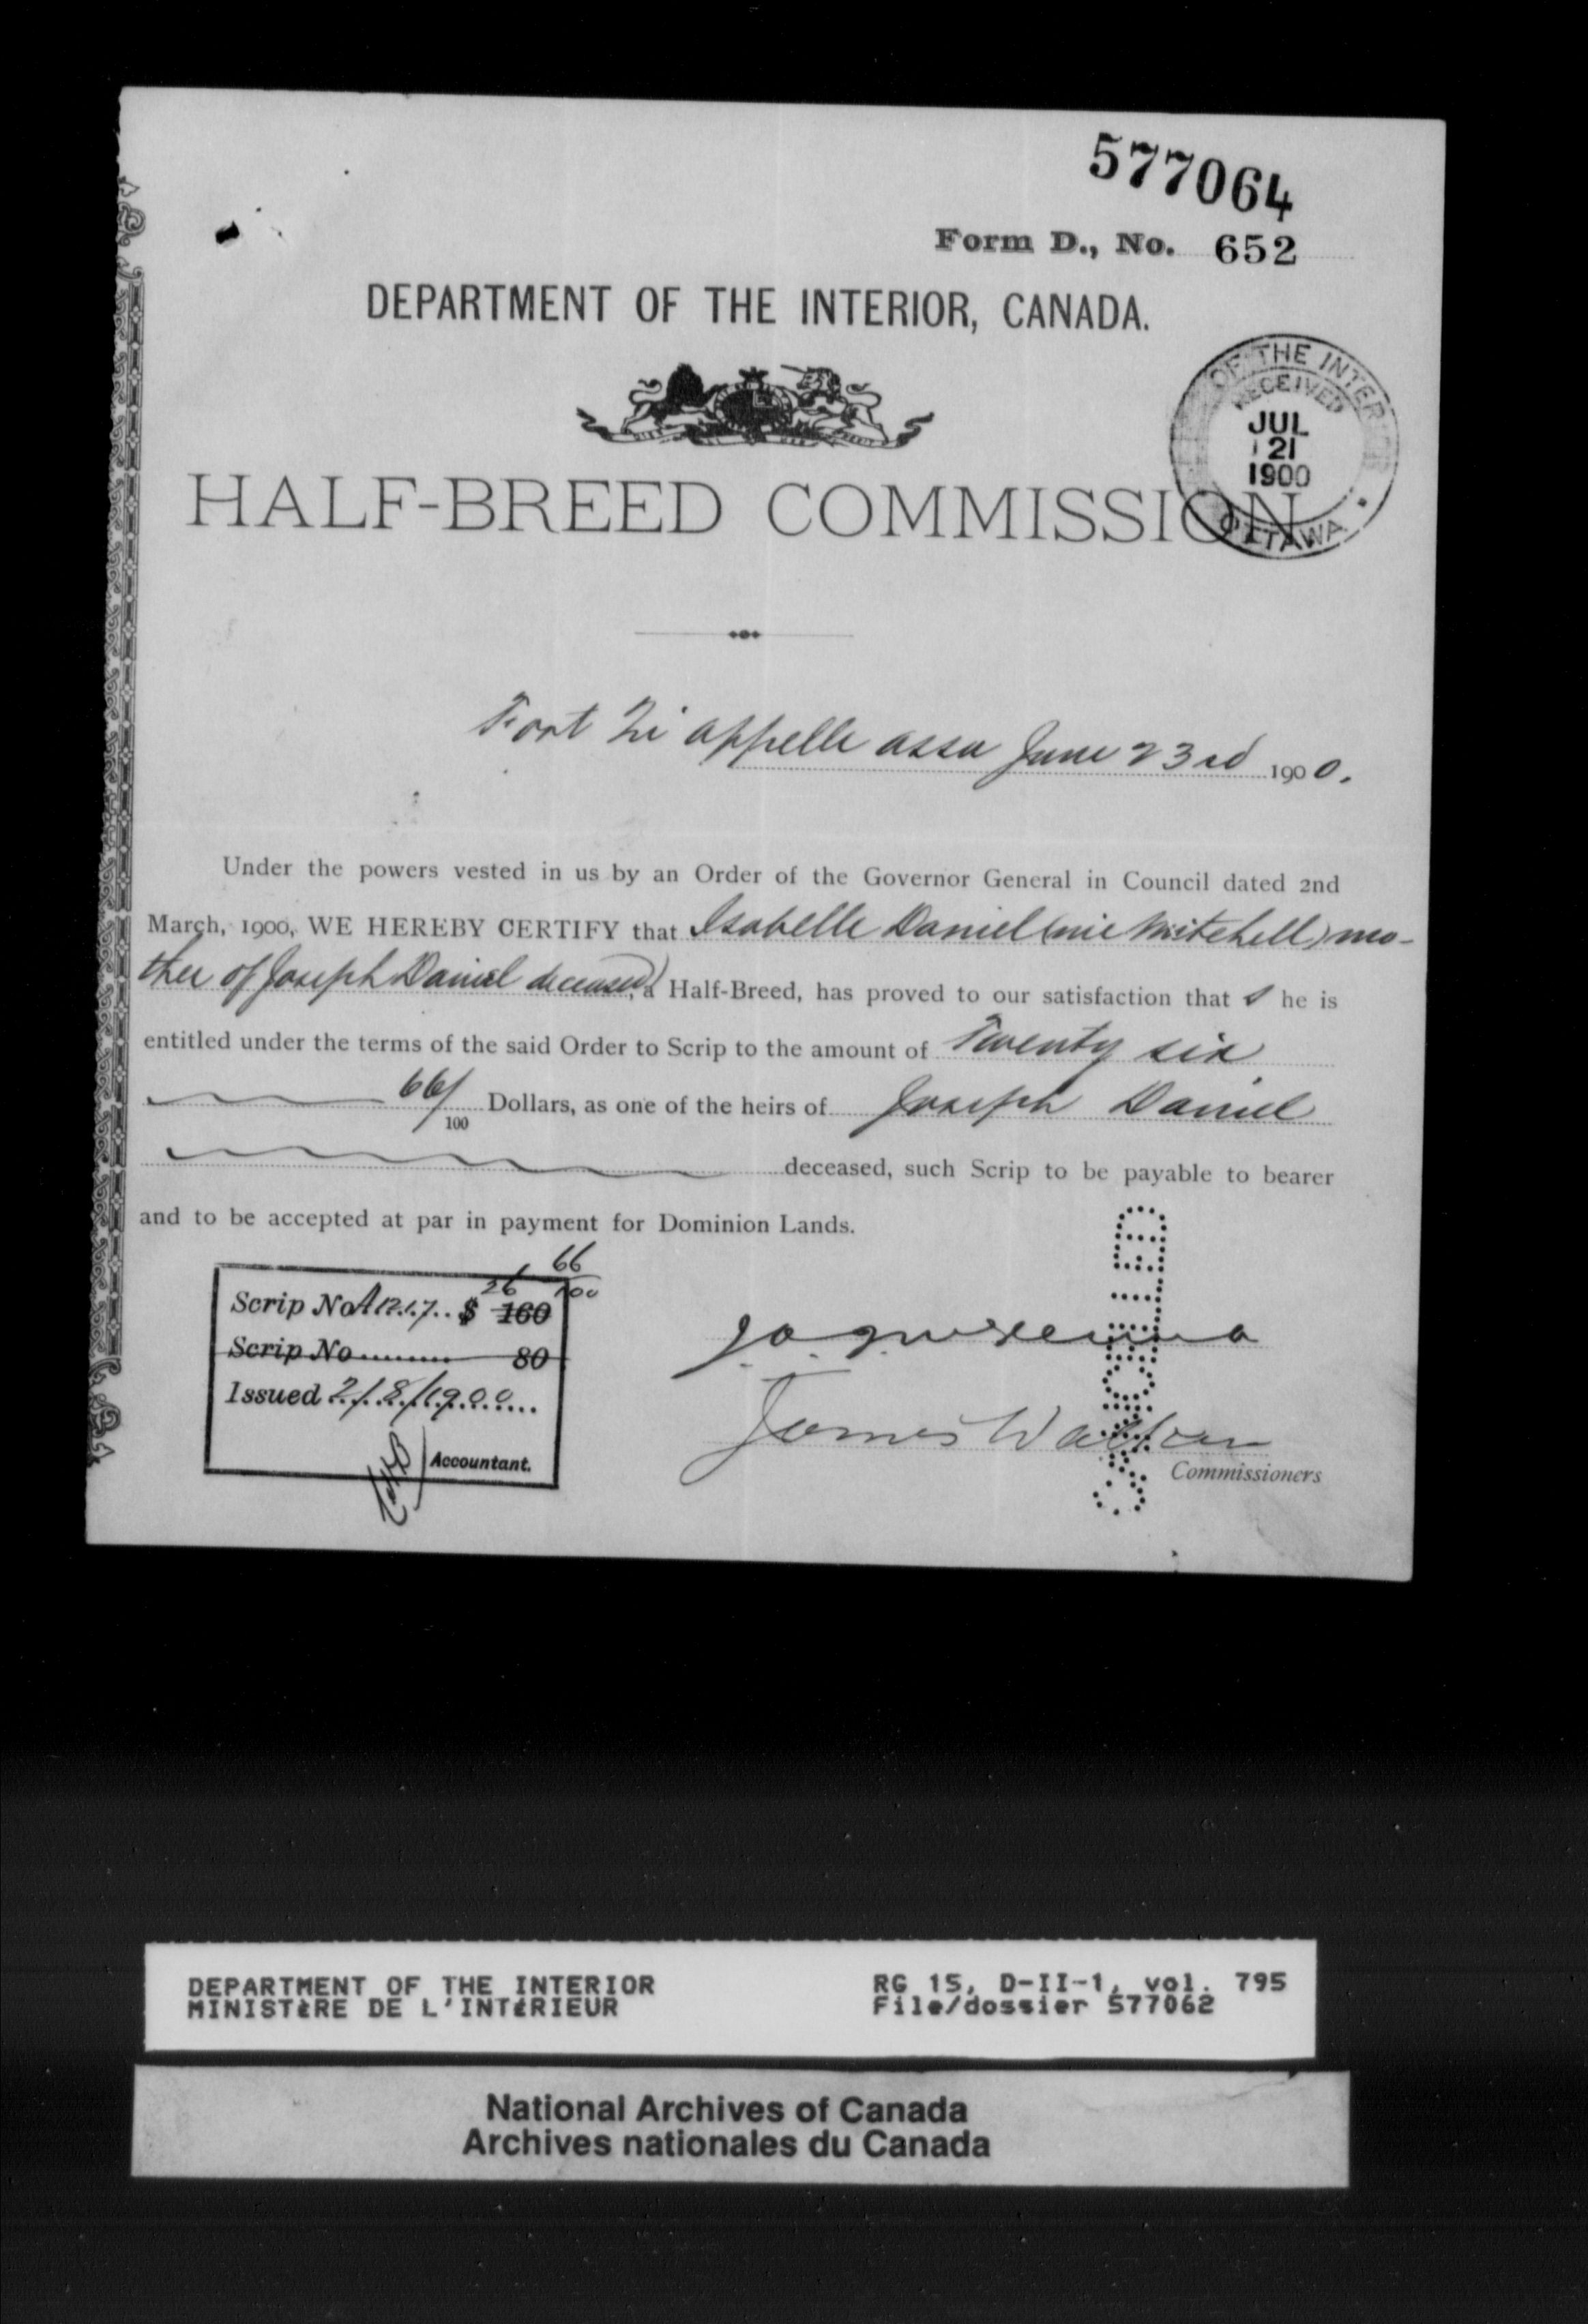 577064
Form D., No. 652
DEPARTMENT OF THE INTERIOR, CANADA.
OF THE INTER
RECEIVED
JUL
21
1900
OTTAWA
HALF-BREED COMMISSION
Fort Qu'appelle assa June 23rd 1900.
Under the powers vested in us by an Order of the Governor General in Council dated 2nd
March, 1900, WE HEREBY CERTIFY that Isabelle Daniel (nie Mitchell) mo-
ther of Joseph Daniel deceased, a Half-Breed, has proved to our satisfaction that s he is
entitled under the terms of the said Order to Scrip to the amount of Twenty six
66/100 Dollars, as one of the heirs of Joseph Daniel
deceased, such Scrip to be payable to bearer
and to be accepted at par in payment for Dominion Lands.
26 66/100
Scrip No A1217.. $ 160
Scrip No......... 80
Issued 2/8/1900....
Accountant.
James Walker
Commissioners
DEPARTMENT OF THE INTERIOR
MINISTÈRE DE L'INTÉRIEUR
RG 15, D-II-1, vol. 795
File/dossier 577062
National Archives of Canada
Archives nationales du Canada